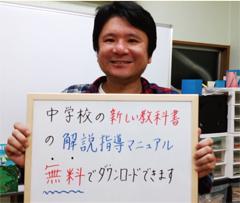 中学校の新しい教科書
の解説指導マニュアル
無料でダウンロードできます